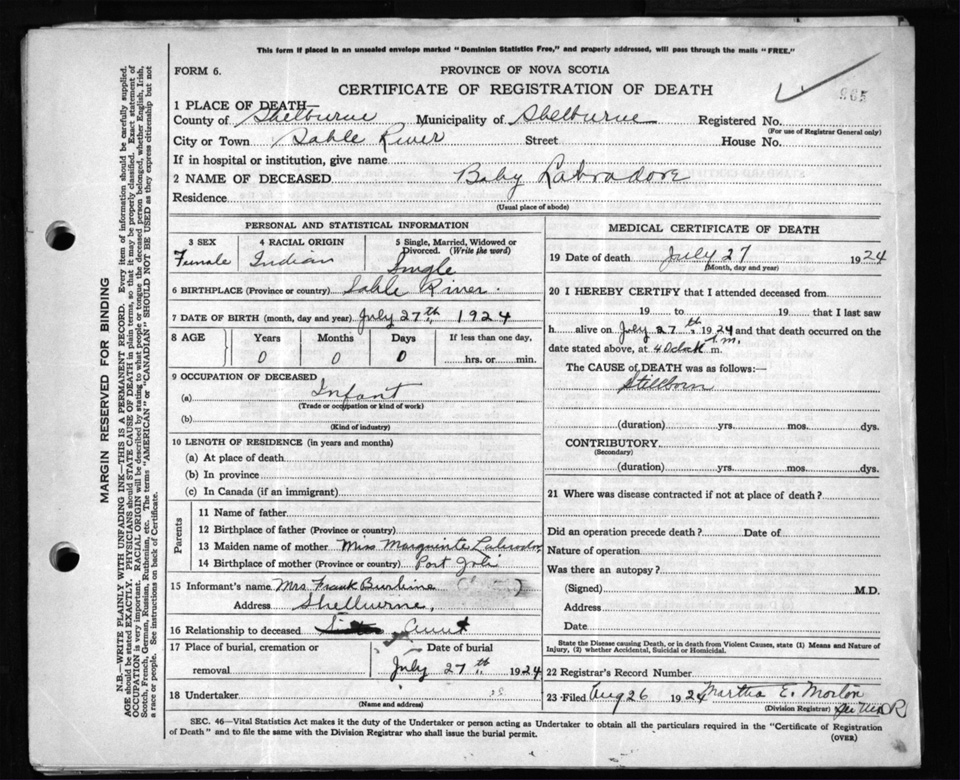 This form if placed in an unsealed envelope marked "Dominion Statistics Free," and properly addressed, will pass through the mails "FREE."
FORM 6.
PROVINCE OF NOVA SCOTIA
CERTIFICATE OF REGISTRATION OF DEATH
865
1 PLACE OF DEATH
County of Shelburne Municipality of Shelburne Registered No.
(For use of Registrar General only)
City or Town Sable River Street House No.
If in hospital or institution, give name
2 NAME OF DECEASED Baby Labradore
Residence
(Usual place of abode)
PERSONAL AND STATISTICAL INFORMATION
3 SEX 4 RACIAL ORIGIN 5 Single, Married, Widowed or Divorced. (Write the word)
Female Indian Single
6 BIRTHPLACE (Province or country) Sable River.
7 DATE OF BIRTH (month, day and year) July 27th, 1924
8 AGE Years Months Days If less than one day,
0 0 0 hrs. or min.
9 OCCUPATION OF DECEASED
(a) Infant
(Trade or occupation or kind of work)
(b)
(Kind of industry)
10 LENGTH OF RESIDENCE (in years and months)
(a) At place of death
(b) In province
(c) In Canada (if an immigrant)
Parents
11 Name of father
12 Birthplace of father (Province or country)
13 Maiden name of mother Miss Marguirite Labrador
14 Birthplace of mother (Province or country) Port Joli
15 Informant's name Mrs Frank Burbine
Address Shelburne,
16 Relationship to deceased Aunt
17 Place of burial, cremation or removal Date of burial
July 27th 1924
18 Undertaker
(Name and address)
MEDICAL CERTIFICATE OF DEATH
19 Date of death July 27 1924
(Month, day and year)
20 I HEREBY CERTIFY that I attended deceased from
19 to 19 that I last saw
h alive on July 27th 1924 and that death occurred on
date stated above, at 4 Oclock a.m. m.
The CAUSE of DEATH was as follows:—
Stillborn
(duration) yrs. mos. dys.
CONTRIBUTORY
(Secondary)
(duration) yrs. mos. dys.
21 Where was disease contracted if not at place of death?
Did an operation precede death? Date of
Nature of operation
Was there an autopsy?
(Signed) M.D.
Address
Date
State the Disease causing Death, or in death from Violent Causes, state (1) Means and Nature of
Injury, (2) whether Accidental, Suicidal or Homicidal.
22 Registrar's Record Number
23 Filed Aug 26 1924 Martha E. Morton
(Division Registrar)
SEC. 46—Vital Statistics Act makes it the duty of the Undertaker or person acting as Undertaker to obtain all the particulars required in the "Certificate of Registration
of Death" and to file the same with the Division Registrar who shall issue the burial permit.
(OVER)
MARGIN RESERVED FOR BINDING
N.B.—WRITE PLAINLY WITH UNFADING INK—THIS IS A PERMANENT RECORD. Every item of information should be carefully supplied.
AGE should be stated EXACTLY. PHYSICIANS should STATE CAUSE OF DEATH in plain terms, so that it may be properly classified. Exact statement of
OCCUPATION is very important. RACIAL ORIGIN will be described by stating to what people or tongue the deceased person belonged, whether English, Irish,
Scotch, French, German, Russian, Ruthenian, etc. The terms "AMERICAN" or "CANADIAN" SHOULD NOT BE USED as they express citizenship but not
a race or people. See instructions on back of Certificate.